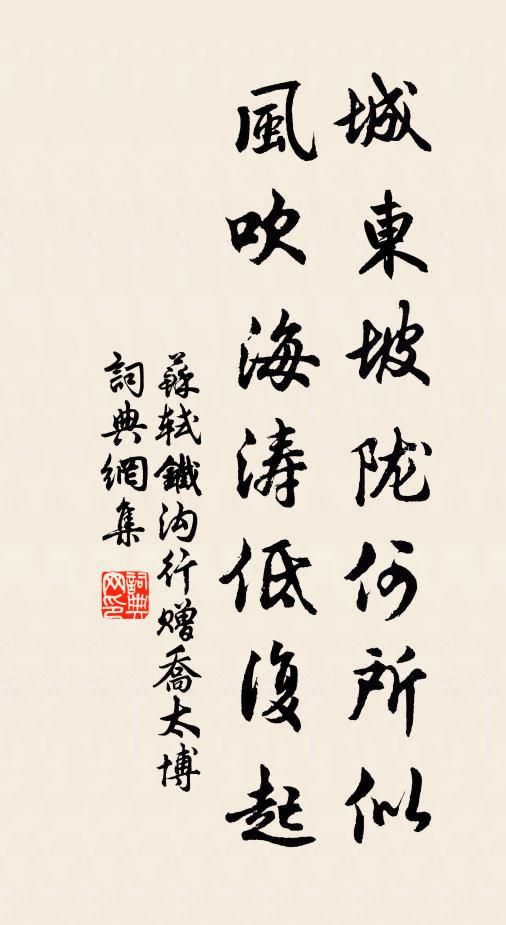 城東坡陇何所似
風吹海涛低復起
蘇轼鐵沟行赠喬太博
詞典網集
詞典网印